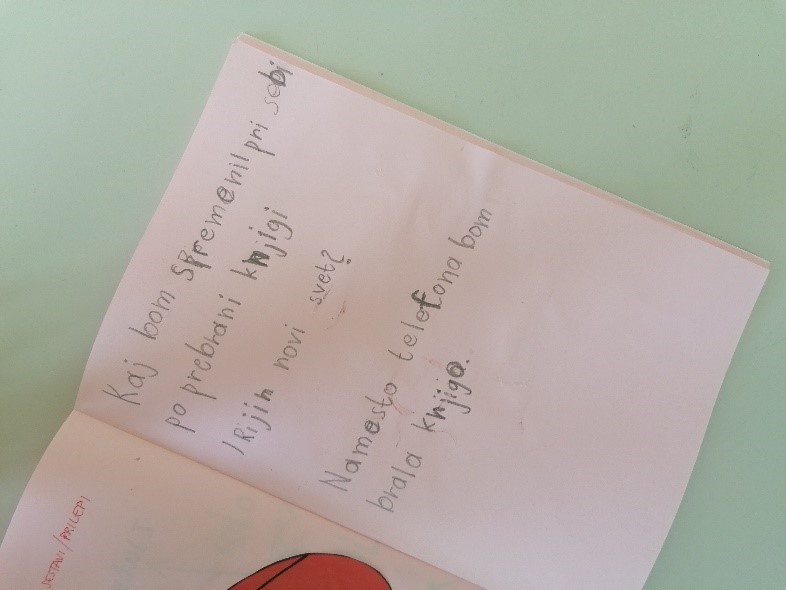 Kaj bom spremenil pri sebi
po prebrani knjigi
IRijin novi svet?
Namesto telefona bom
brala knjigo.
SESTAVI/PRILEPI